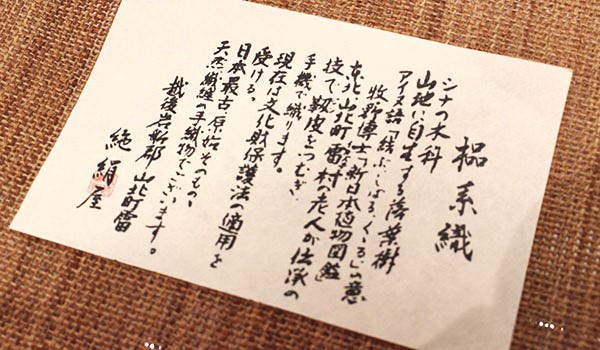 榀系織
シナの木科
山地に自生する落葉樹
アイヌ語「結ぶ・しばる・くくる」の意
牧野博士「新日本植物図鑑」
東北・山北町雷村の老人が伝承の
技で靱皮をつむぎ
手機で織ります。
現在は文化財保護法の適用を
受ける。
日本最古、原始そのもの、
天然繊維の手織物でございます。
越後岩船郡 山北町雷
絹屋